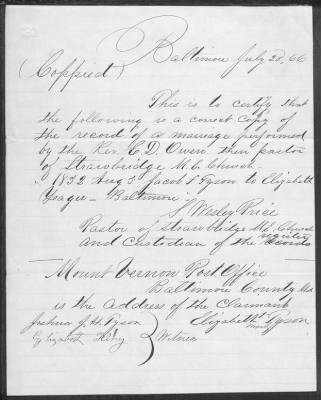 Baltimore July 20, 66
(Coppied)
This is to certify that
the following is a correct copy of
the record of a marriage performed
by the Rev. C. D. Owen then pastor
of Strawbridge M. E. Church.
1832 Aug 5 Jacob F Tyson to Elizabeth
Yeager - Baltimore
S Wesley Price
Pastor of Strawbridge M.E. Church
and Custodian of the register
Mount Vernon Post Office
Baltimore County Md
is the address of the Claimant
Joshua J. H. Tyson
Elizabeth Tyson
mark
Elizabeth
Witnes